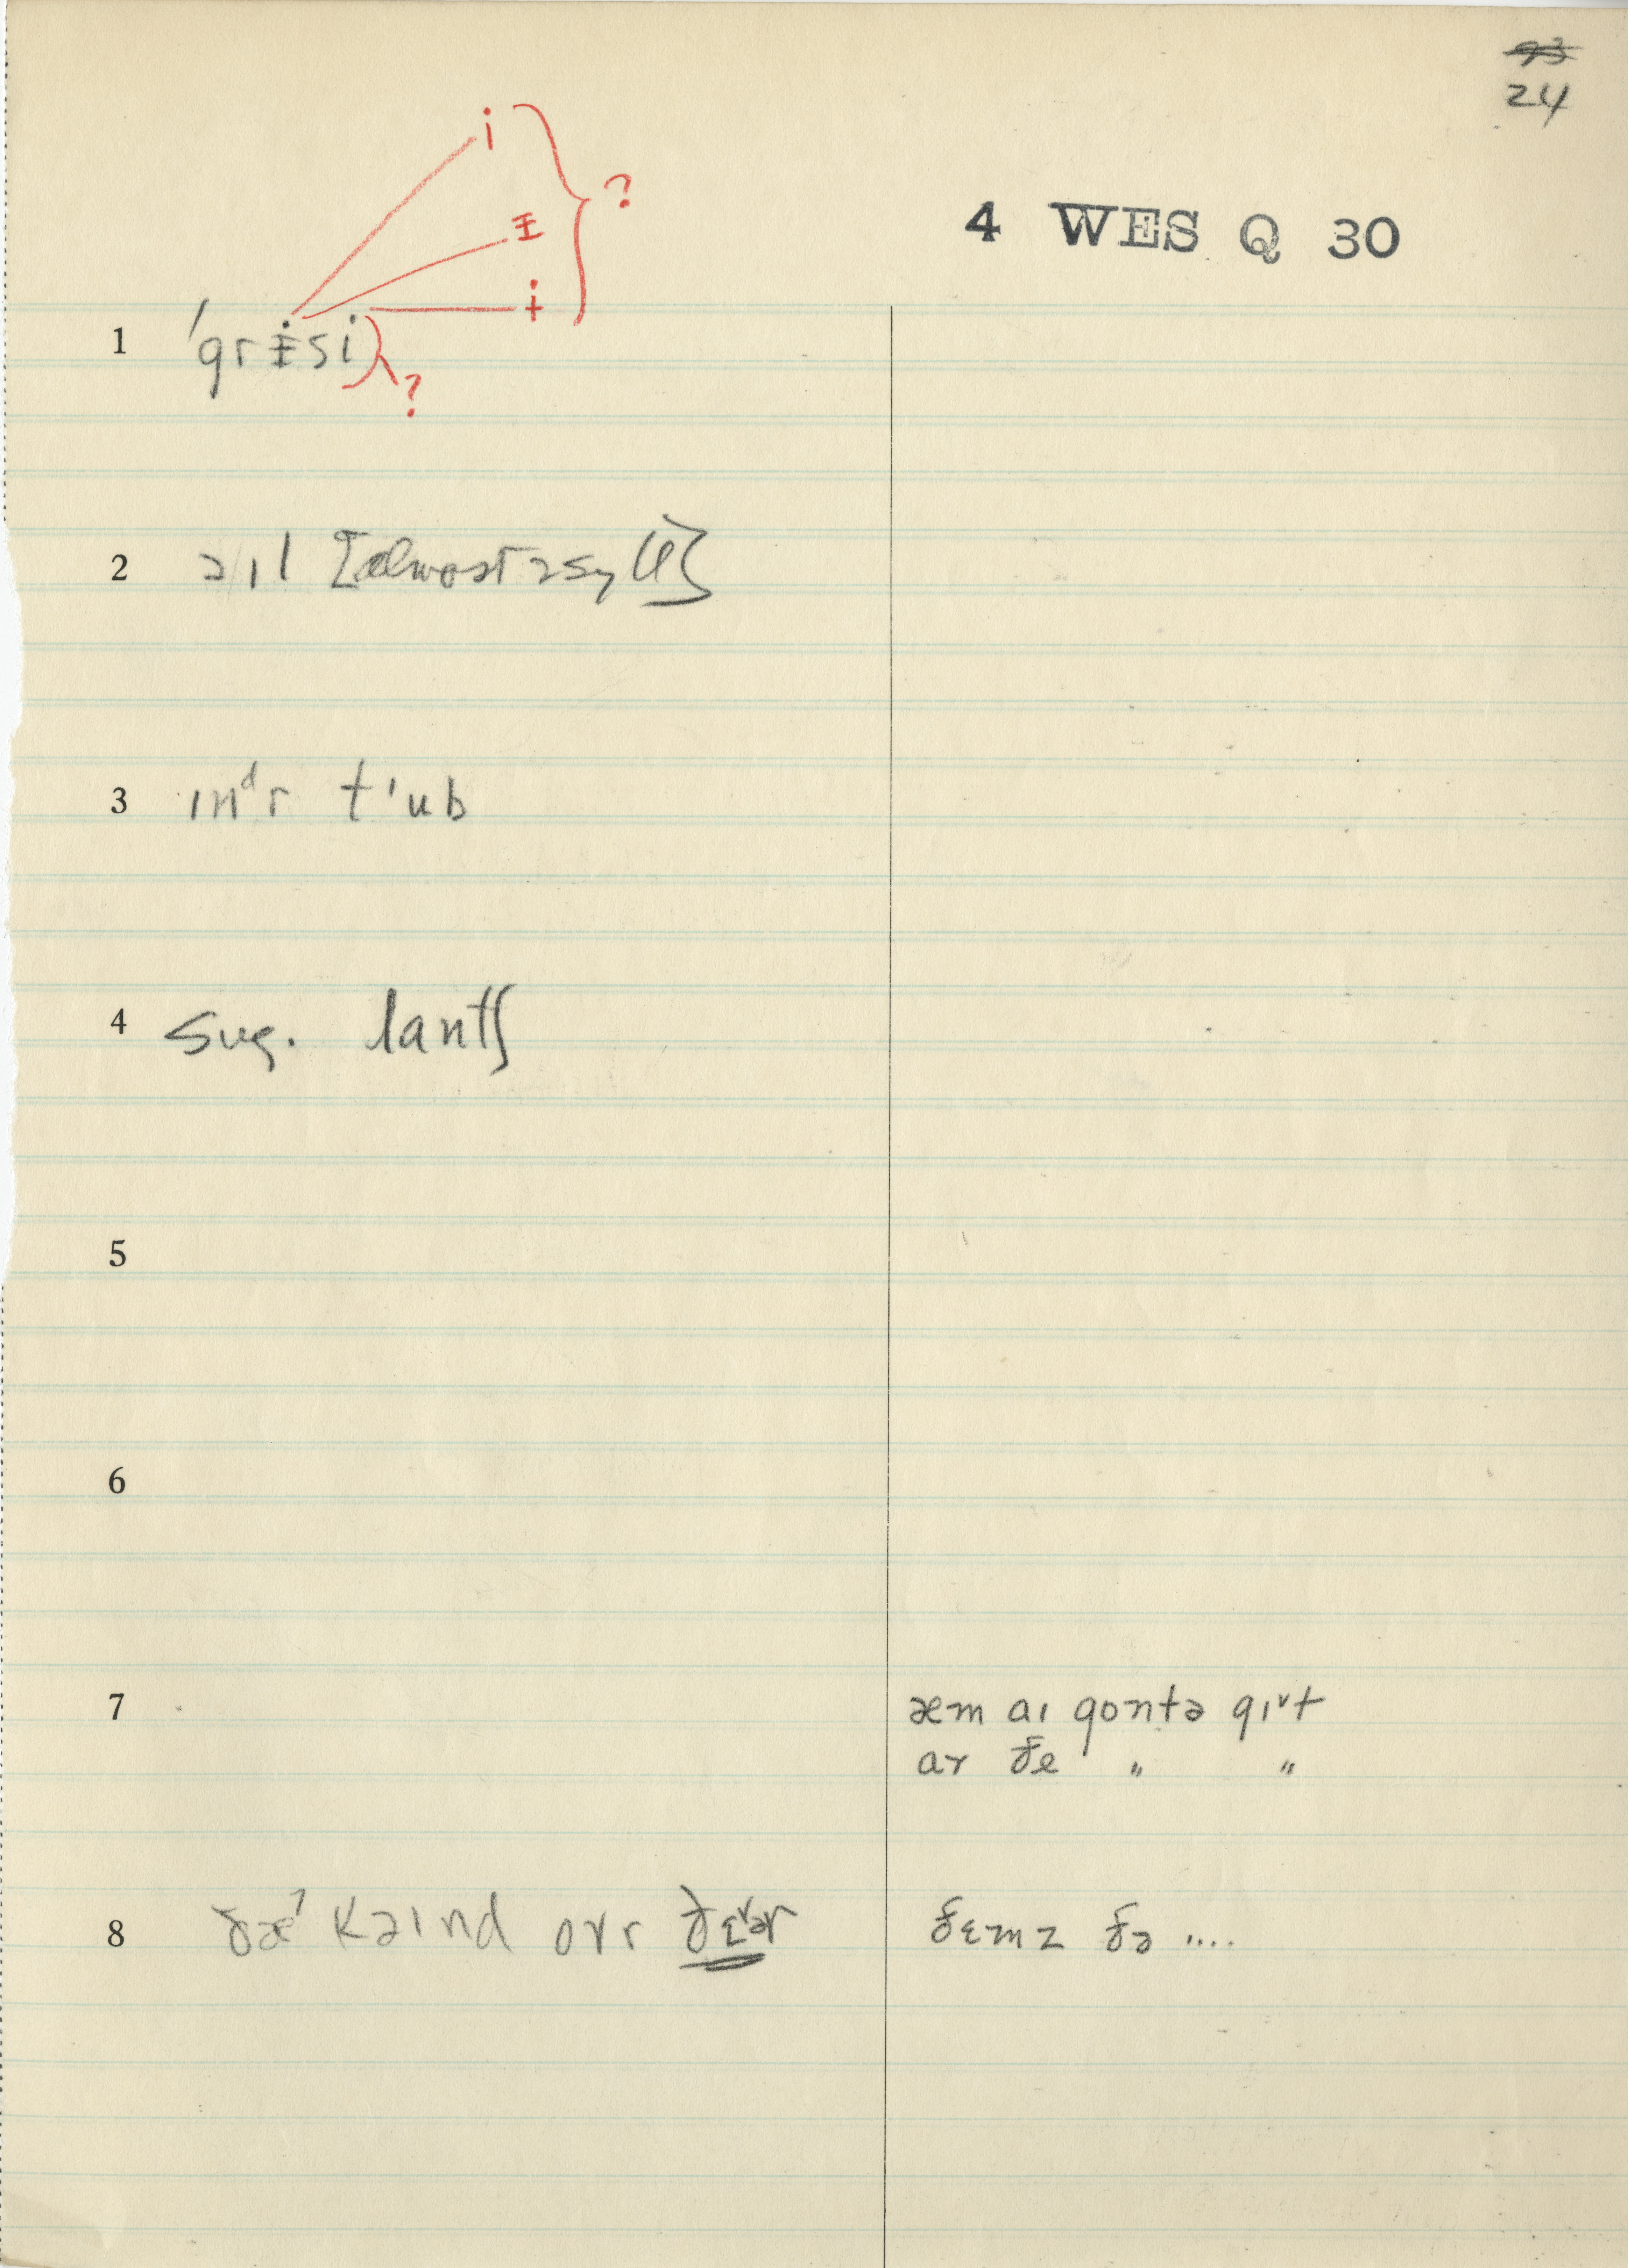 93
24
i
ᵻ ?
4 WES Q 30
ɨ
1 'grᵻsi ?
2 ɔɪl [almost 2 syll]
3 ɪnᵈr t'ub
4 sug. lantʃ
5
6
7 æm aɪ gontə gɪᵛt
ar ðe " "
8 ðæˀ kəɪnd ovr ðɛᵛər ðɛmz ðə ....